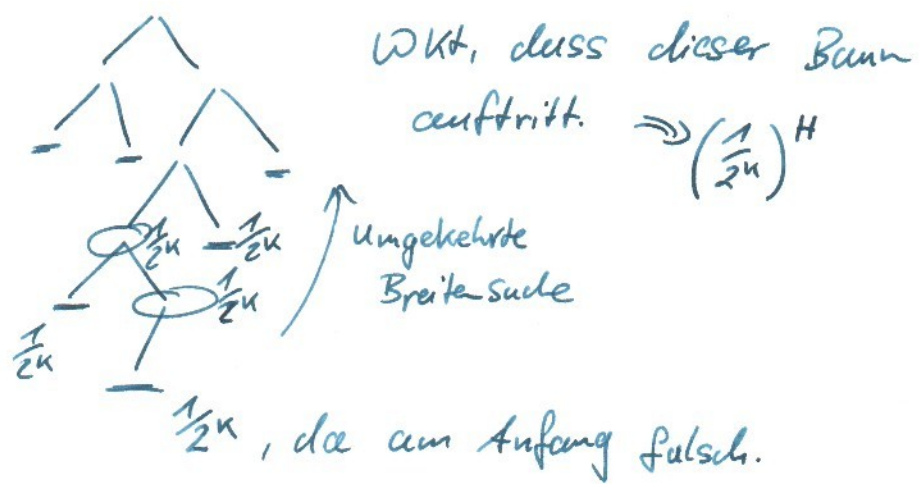 Wkt, dass dieser Baum
auftritt. ⇒ (1/2^k)^H
1/2^k 1/2^k
Umgekehrte
Breitensuche
1/2^k
1/2^k
1/2^k, da am Anfang falsch.